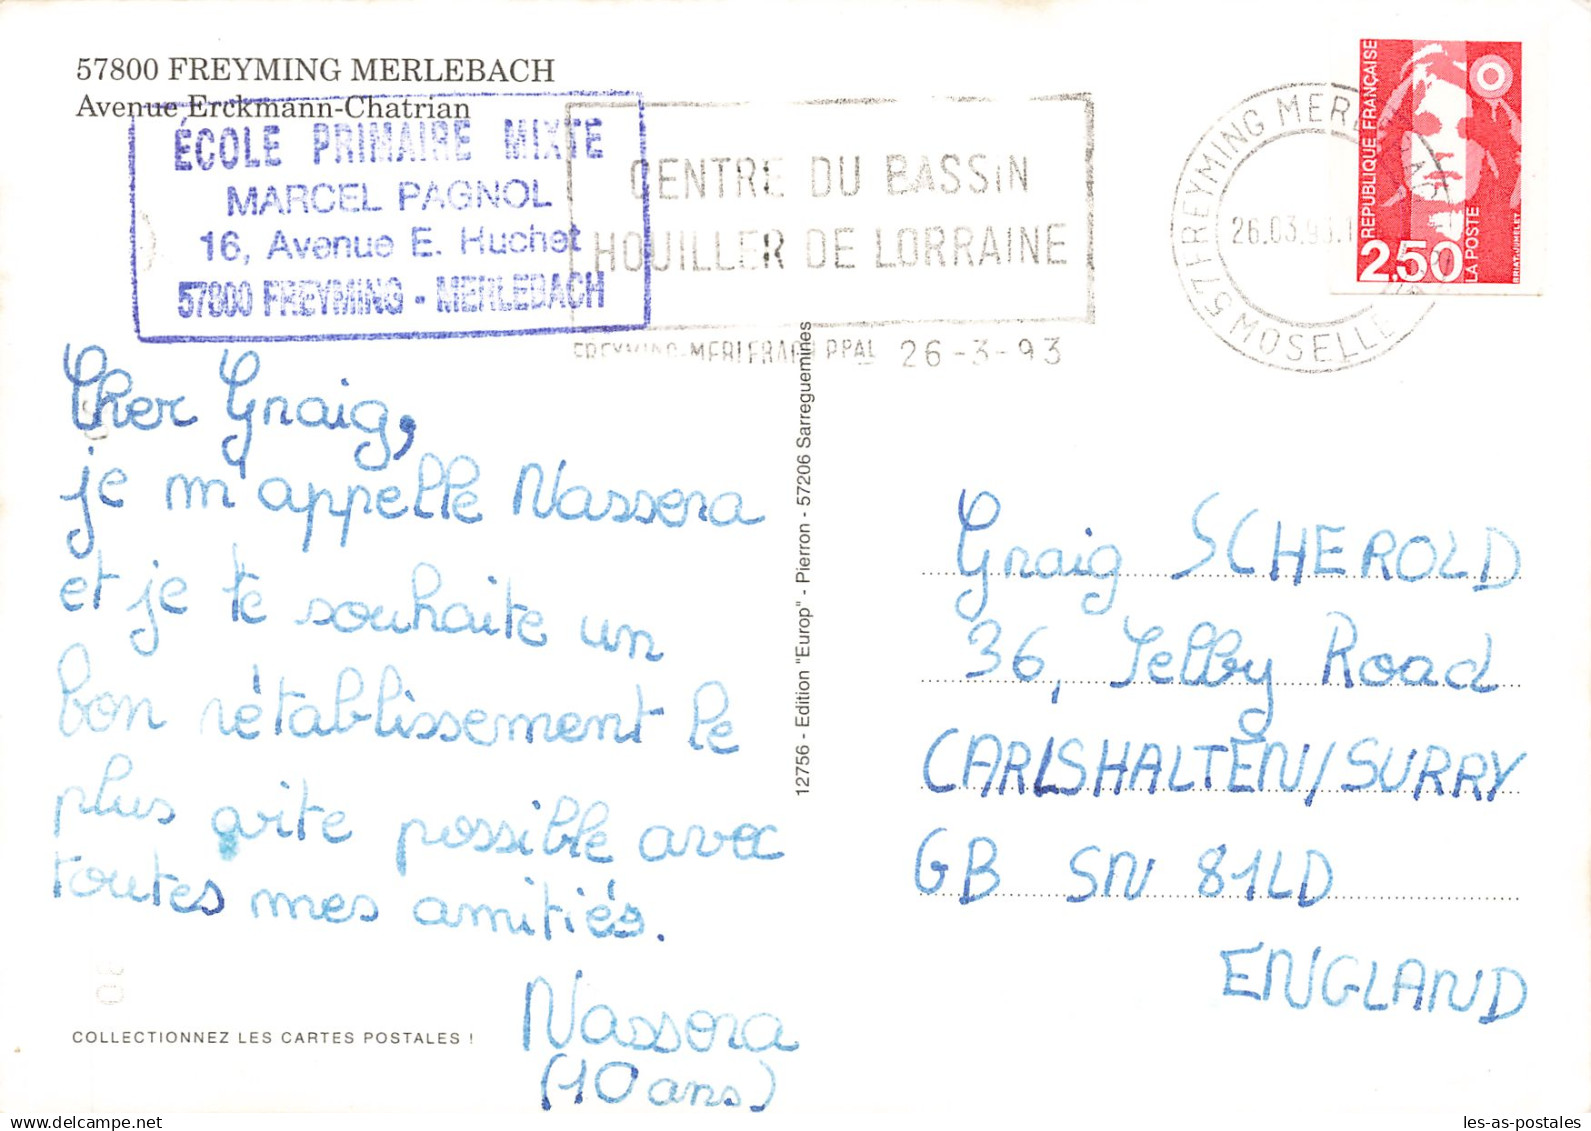 57800 FREYMING MERLEBACH
Avenue Erckmann-Chatrian
ÉCOLE PRIMAIRE MIXTE
MARCEL PAGNOL
16, Avenue E. Huchet
57800 FREYMING - MERLEBACH
CENTRE DU BASSIN
HOUILLER DE LORRAINE
FREYMING-MERLEBACH PPAL 26-3-93
57 FREYMING MERLEBACH
26.03.93
MOSELLE
REPUBLIQUE FRANÇAISE
2,50
LA POSTE
BRIAT-JUMELET
Cher Graig,
je m'appelle Nassera
et je te souhaite un
bon rétablissement le
plus vite possible avec
toutes mes amitiés.
Nassera
(10 ans)
COLLECTIONNEZ LES CARTES POSTALES !
12756 - Edition "Europ" - Pierron - 57206 Sarreguemines
Graig SCHEROLD
36, Selby Road
CARLSHALTEN/SURRY
GB SN 81LD
ENGLAND
les-as-postales